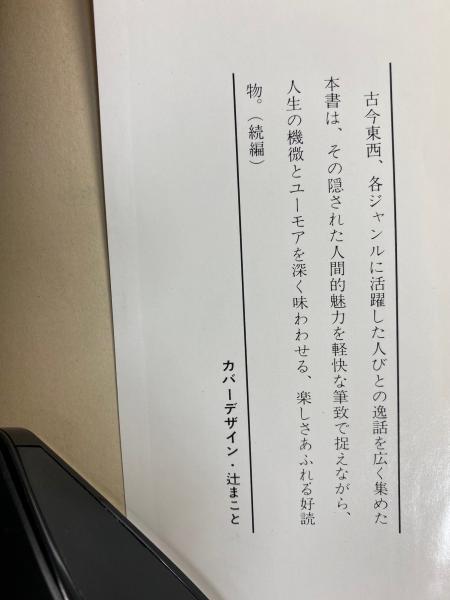 古今東西、各ジャンルに活躍した人びとの逸話を広く集めた
本書は、その隠された人間的魅力を軽快な筆致で捉えながら、
人生の機微とユーモアを深く味わわせる、楽しさあふれる好読
物。（続編）
カバーデザイン・辻まこと